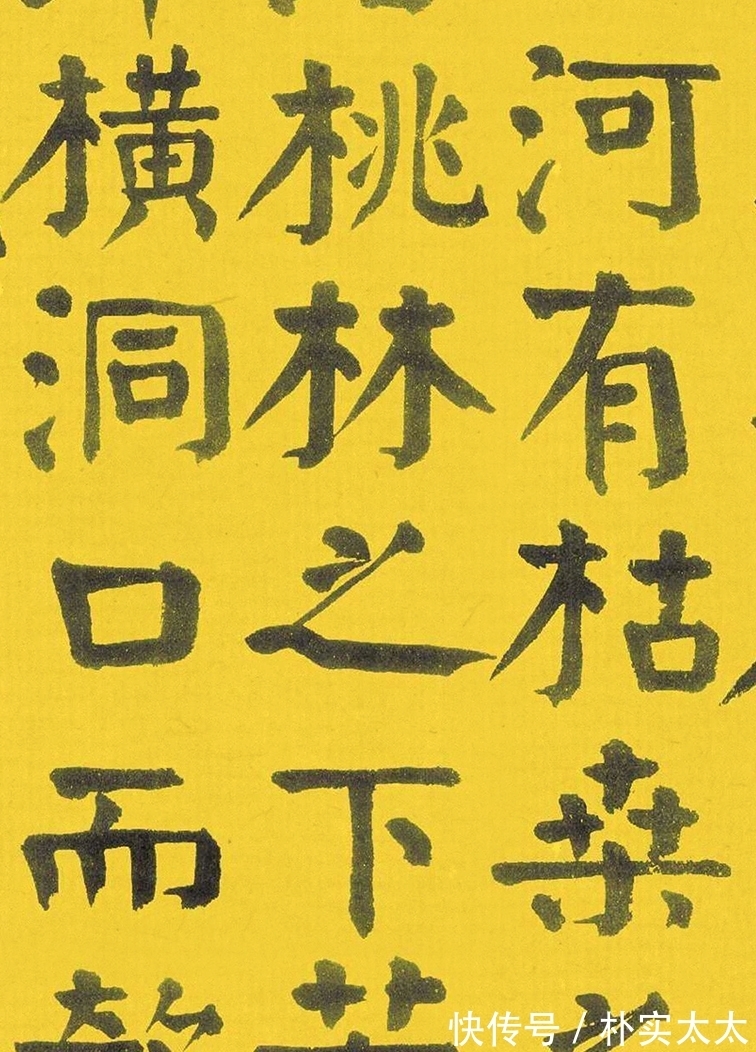 河有枯桑
桃林之下
横洞口而
快传号 / 朴实太太